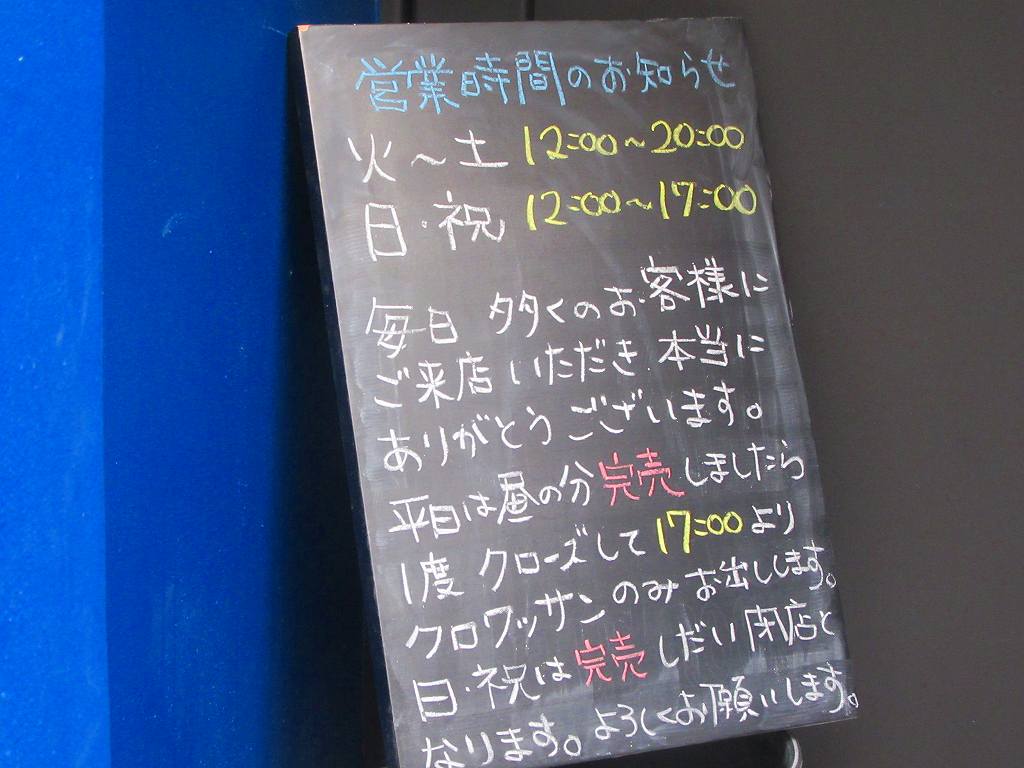 営業時間のお知らせ
火～土 12:00～20:00
日・祝 12:00～17:00
毎日 多くのお客様に
ご来店いただき 本当に
ありがとうございます。
平日は昼の分完売しましたら
1度 クローズして 17:00より
クロワッサンのみお出しします。
日・祝は完売しだい閉店と
なります。よろしくお願いします。